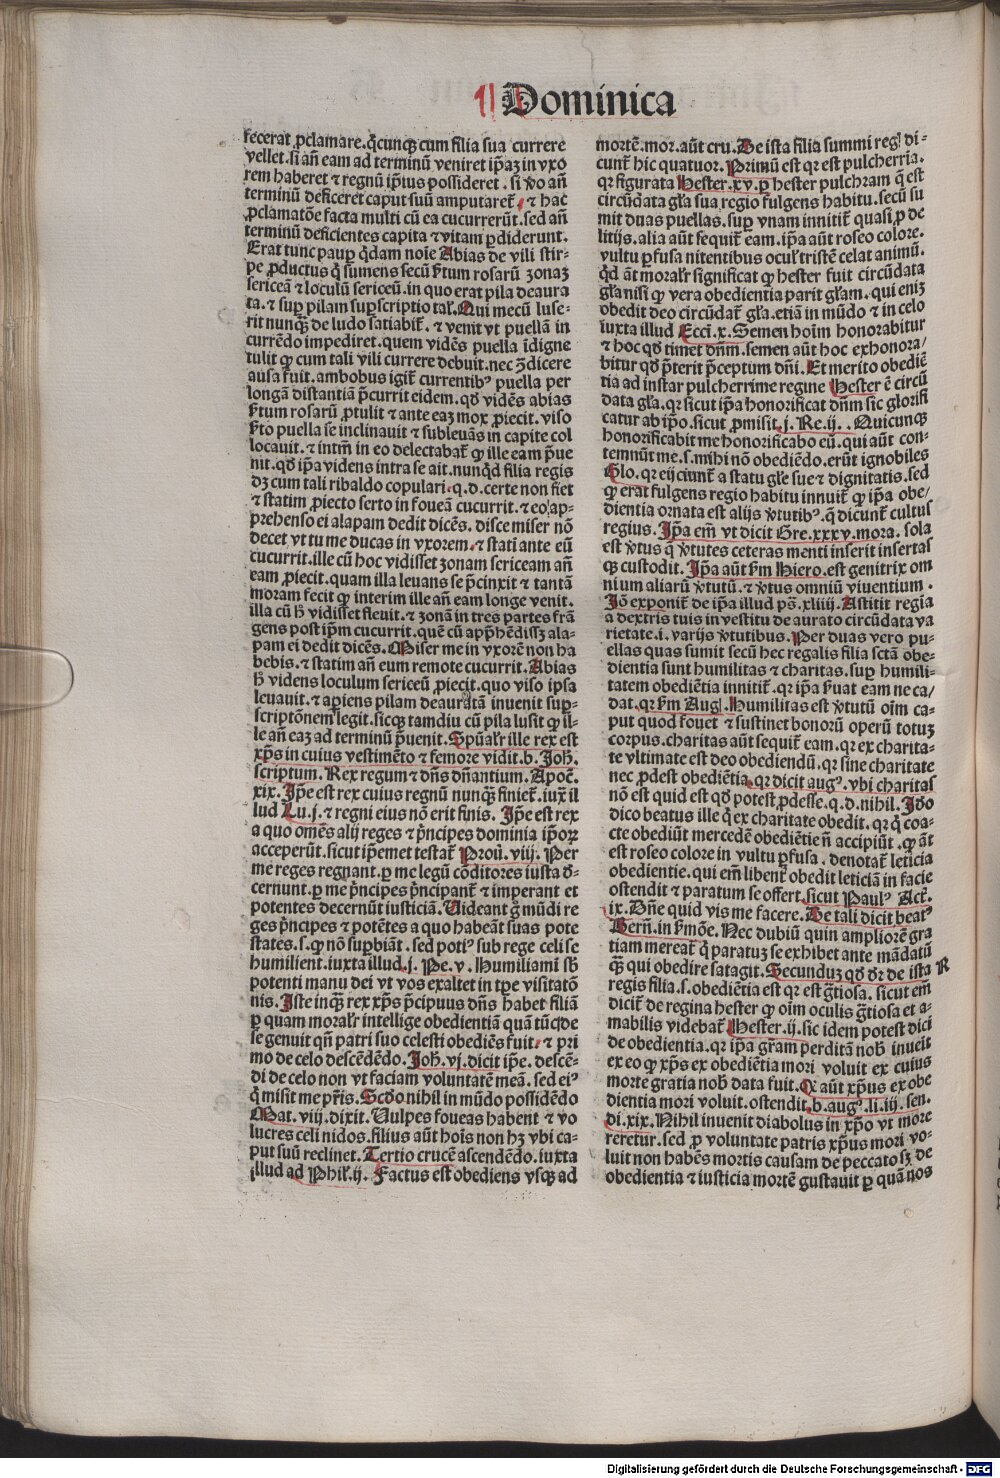 Dominica
fecerat ꝓclamare.q̇cunqꝫ cum filia sua currere
vellet.si añ eam ad terminū veniret ip̄aꝫ in vxo
rem haberet ⁊ regnū ip̄ius possideret. si ꝟo añ
terminū deficeret caput suū amputaret᷑. ⁊ hac
ꝓclamatōe facta multi cū ea cucurrerūt.sed añ
terminū deficientes capita ⁊ vitam ꝑdiderunt.
Erat tunc pauꝑ q̇dam noīe Abias de vili stir-
pe ꝓductus q̇ sumens secū ẜtum rosarū zonaꝫ
sericeā ⁊ loculū sericeū.in quo erat pila deaura
ta.⁊ suꝑ pilam suꝑscriptio tal̄.Qui mecū luse-
rit nunqꝫ̄ de ludo satiabit᷑. ⁊ venit vt puellā in
currēdo impediret.quem vidēs puella īdigne
tulit ꝙ cum tali vili currere debuit.nec ↄ̄dicere
ausa fuit.ambobus igit᷑ currentibꝰ puella per
longā distantiā p̄currit eidem.qd̄ vidēs abias
ẜtum rosarū ꝓtulit ⁊ ante eaꝫ mox ꝓiecit. viso
ẜto puella se inclinauit ⁊ subleuās in capite col
locauit.⁊ intm̄ in eo delectabat᷑ ꝙ ille eam p̄ue
nit.qd̄ ip̄a videns intra se ait.nunqd̄ filia regis
dꝫ cum tali ribaldo copulari.q.d.certe non fiet
⁊ statim ꝓiecto serto in foueā cucurrit.⁊ eo ap-
prehenso ei alapam dedit dicēs. disce miser nō
decet vt tu me ducas in vxorem.⁊ stati ante eū
cucurrit.ille cū hoc vidisset zonam sericeam añ
eam ꝓiecit.quam illa leuans se p̄cinxit ⁊ tantā
moram fecit ꝙ interim ille añ eam longe venit.
illa cū h̄ vidisset fleuit.⁊ zonā in tres partes frā
gens post ip̄m cucurrit.quē cū app̄hēdissꝫ ala-
pam ei dedit dicēs. Miser me in vxorē non ha
bebis.⁊ statim añ eum remote cucurrit. Abias
h̄ videns loculum sericeū ꝓiecit.quo viso ipsa
leuauit.⁊ aꝑiens pilam deauratā inuenit suꝑ-
scriptōnem legit.sicqꝫ tamdiu cū pila lusit ꝙ il-
le añ eaꝫ ad terminū p̄uenit. Spūal̄r ille rex est
xp̄s in cuius vestimēto ⁊ femore vidit.b. Joh̄.
scriptum. Rex regum ⁊ dn̄s dn̄antium. Apoc̄.
xix. Ip̄e est rex cuius regnū nunqꝫ̄ finiet᷑.iux̄ il
lud Lu.j.⁊ regni eius nō erit finis. Ip̄e est rex
a quo om̄es alij reges ⁊ p̄ncipes dominia ip̄oꝝ
acceperūt.sicut ip̄emet testat᷑ Prou̅. viij. Per
me reges regnant.ꝑ me legū cōditores iusta d̄-
cernunt.ꝑ me p̄ncipes p̄ncipant᷑ ⁊ imperant et
potentes decernūt iusticiā. Uideant g̊ mūdi re
ges p̄ncipes ⁊ potētes a quo habeāt suas pote
states.s.ꝙ nō suꝑbiāt.sed potiꝰ sub rege celi se
humilient.iuxta illud.j. Pe.v. Humiliamī sb̄
potenti manu dei vt vos exaltet in tp̄e visitatō
nis. Iste inqꝫ̄ rex xp̄s p̄cipuus dn̄s habet filiā
ꝑ quam moral̄r intellige obedientiā quā tūc de
se genuit qn̄ patri suo celesti obediēs fuit.⁊ pri
mo de celo descēdēdo. Joh̄.vj.dicit ip̄e. descē-
di de celo non vt faciam voluntatē meā.sed eiꝰ
q̇ misit me pr̄is. Scd̄o nihil in mūdo possidēdo
Mat. viij.dixit. Uulpes foueas habent ⁊ vo
lucres celi nidos.filius aūt hoīs non hꝫ vbi ca-
put suū reclinet. Tertio crucē ascendēdo.iuxta
illud ad Phil̄.ij. Factus est obediens vsqꝫ ad
mortē.mor.aūt cru. De ista filia summi reg̉ di-
cunt᷑ hic quatuor. Primū est qr est pulcherria.
qr figurata Hester.xv.ꝑ hester pulchram q̄ est
circūdata gl̄a sua regio fulgens habitu.secū su
mit duas puellas.suꝑ vnam innitit᷑ quasi ꝓ de
litijs.alia aūt sequit᷑ eam.ip̄a aūt roseo colore.
vultu ꝑfusa nitentibus ocul̉ tristē celat animū.
Qd̄ āt moral̄r significat ꝙ hester fuit circūdata
gl̄a nisi ꝙ vera obedientia parit gl̄am. qui eniꝫ
obedit deo circūdat᷑ gl̄a.etiā in mūdo ⁊ in celo
iuxta illud Ecci̅.x. Semen hoīm honorabitur
⁊ hoc qd̄ timet dn̄m.semen aūt hoc exhonora/
bitur qd̄ p̄terit p̄ceptum dn̄i. Et merito obediē
tia ad instar pulcherrime regine Hester ē circū
data gl̄a.qr sicut ip̄a honorificat dn̄m sic glorifi
catur ab ip̄o.sicut ꝓmisit.j. Re.ij. .Quicunqꝫ
honorificabit me honorificabo eū.qui aūt con-
temnūt me.s.mihi nō obediēdo.erūt ignobiles
Glo.qr eijciunt᷑ a statu gl̄e sue ⁊ dignitatis.sed
ꝙ erat fulgens regio habitu innuit᷑ ꝙ ip̄a obe/
dientia ornata est alijs ꝟtutibꝰ.q̄ dicunt᷑ cultus
regius. Ip̄a em̄ vt dicit Gre.xxxv.mora. sola
est ꝟtus q̄ ꝟtutes ceteras menti inserit insertas
qꝫ custodit. Ip̄a aūt ẜm Hiero.est genitrix om
nium aliarū ꝟtutū.⁊ ꝟtus omniū viuentium.
Iō exponit᷑ de ip̄a illud ps̄.xliiij. Astitit regia
a dextris tuis in vestitu de aurato circūdata va
rietate.i.varijs ꝟtutibus. Per duas vero pu-
ellas quas sumit secū hec regalis filia sctā obe-
dientia sunt humilitas ⁊ charitas.suꝑ humili-
tatem obediētia innitit᷑.qr ip̄a ẜuat eam ne ca/
dat.qr ẜm Aug̉. Humilitas est ꝟtutū oīm ca-
put quod fouet ⁊ sustinet honorū operū totuꝫ
corpus.charitas aūt sequit᷑ eam.qr ex charita-
te vltimate est deo obediendū.qr sine charitate
nec ꝓdest obediētia.qr dicit augꝰ. vbi charitas
nō est quid est qd̄ potest ꝓdesse.q.d.nihil. Id̄o
dico beatus ille q̇ ex charitate obedit.qr q̇ coa-
cte obediūt mercedē obediētie n̄ accipiūt.ꝙ āt
est roseo colore in vultu ꝑfusa. denotat᷑ leticia
obedientie.qui em̄ libent᷑ obedit leticiā in facie
ostendit ⁊ paratum se offert.sicut Paulꝰ Act̄.
ix. Dn̄e quid vis me facere. De tali dicit beatꝰ
Bern̄.in ẜmōe. Nec dubiū quin ampliorē gra
tiam mereat᷑ q̇ paratuꝫ se exhibet ante mādatū
qꝫ̄ qui obedire satagit. Secunduꝫ qd̄ dr̄ de ista
R
regis filia.s.obediētia est qr est gr̄tiosa.sicut em̄
dicit᷑ de regina hester ꝙ oīm oculis gr̄tiosa et a-
mabilis videbat᷑ Hester.ij.sic idem potest dici
de obedientia.qr ip̄a gr̄am perditā nob̄ inueit
ex eo ꝙ xp̄s ex obediētia mori voluit ex cuius
morte gratia nob̄ data fuit. Q aūt xp̄us ex obe
dientia mori voluit.ostendit.b.augꝰ.li.iij.sen.
di.xix. Nihil inuenit diabolus in xp̄o vt more
reretur.sed ꝓ voluntate patris xp̄us mori vo-
luit non habēs mortis causam de peccato sꝫ de
obedientia ⁊ iusticia mortē gustauit ꝑ quā nos
Digitalisierung gefördert durch die Deutsche Forschungsgemeinschaft - DFG